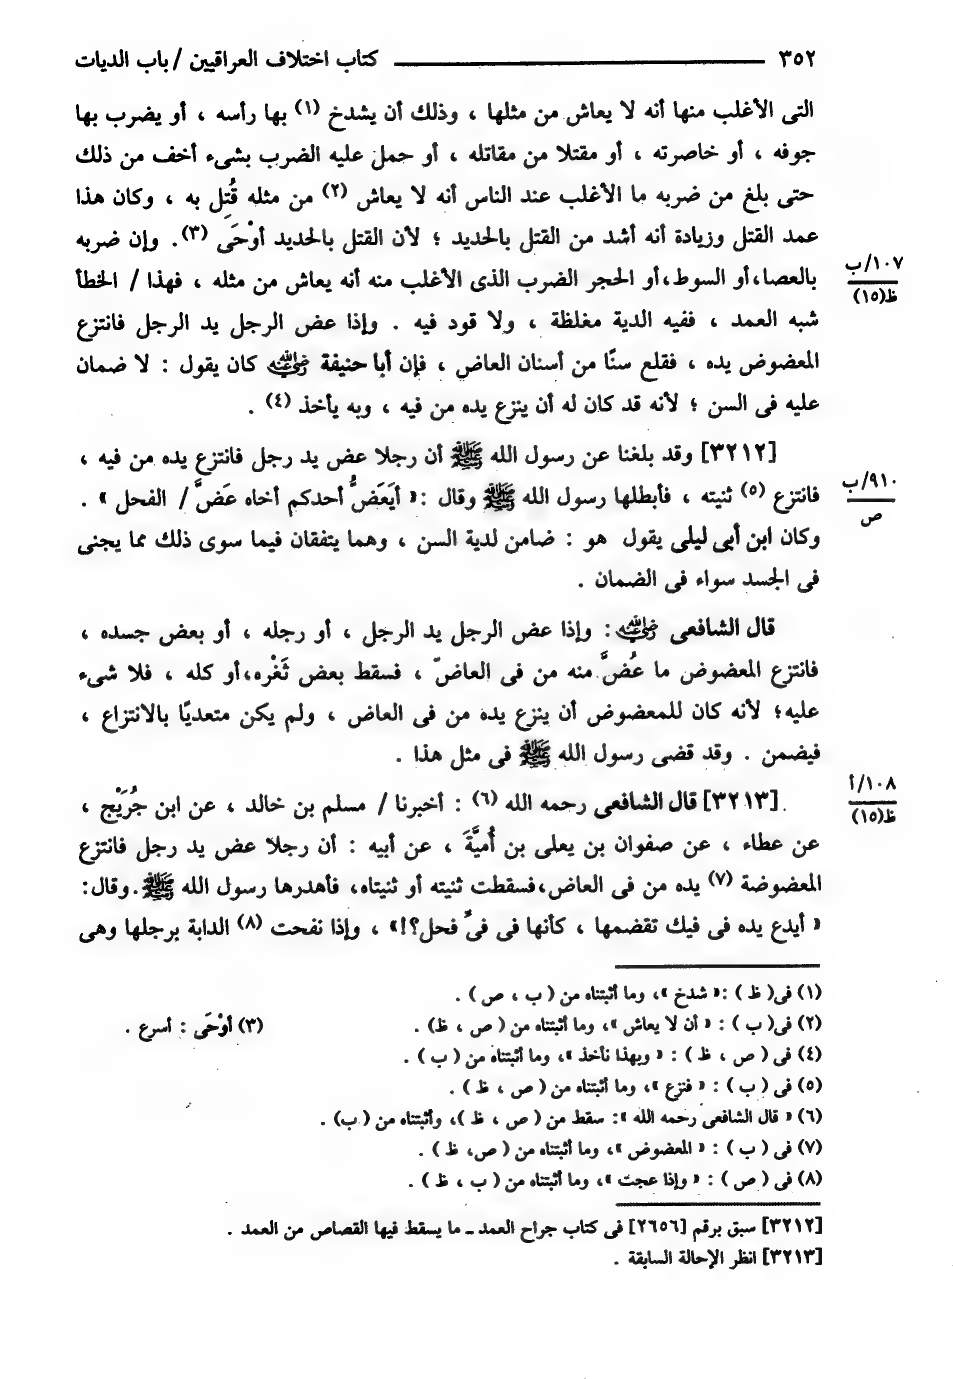 ٣٥٢ ــــــــــــــــــــــــــــــــــــــــ كتاب اختلاف العراقيين / باب الديات
التى الأغلب منها أنه لا يعاش من مثلها ، وذلك أن يشدخ (١) بها رأسه ، أو يضرب بها
جوفه ، أو خاصرته ، أو مقتلا من مقاتله ، أو حمل عليه الضرب بشىء أخف من ذلك
حتى بلغ من ضربه ما الأغلب عند الناس أنه لا يعاش (٢) من مثله قُتِل به ، وكان هذا
عمد القتل وزيادة أنه أشد من القتل بالحديد ؛ لأن القتل بالحديد أوْحَى (٣). وإن ضربه
١٠٧/ب
ظ(١٥)
بالعصا،أو السوط،أو الحجر الضرب الذى الأغلب منه أنه يعاش من مثله ، فهذا / الخطأ
شبه العمد ، ففيه الدية مغلظة ، ولا قود فيه . وإذا عض الرجل يد الرجل فانتزع
المعضوض يده ، فقلع سنًا من أسنان العاض ، فإن أبا حنيفة رضي الله عنه كان يقول : لا ضمان
عليه فى السن ؛ لأنه قد كان له أن ينزع يده من فيه ، وبه يأخذ (٤) .
[٣٢١٢] وقد بلغنا عن رسول الله ﷺ أن رجلا عض يد رجل فانتزع يده من فيه ،
٩١٠/ب
ص
فانتزع (٥) ثنيته ، فأبطلها رسول الله ﷺ وقال :« أيَعَضُّ أحدكم أخاه عَضَّ / الفحل » .
وكان ابن أبى ليلى يقول هو : ضامن لدية السن ، وهما يتفقان فيما سوى ذلك مما يجنى
فى الجسد سواء فى الضمان .
قال الشافعى رضي الله عنه : وإذا عض الرجل يد الرجل ، أو رجله ، أو بعض جسده ،
فانتزع المعضوض ما عُضَّ منه من فى العاضّ ، فسقط بعض ثَغْره،أو كله ، فلا شىء
عليه؛ لأنه كان للمعضوض أن ينزع يده من فى العاض ، ولم يكن متعديًا بالانتزاع ،
فيضمن . وقد قضى رسول الله ﷺ فى مثل هذا .
١٠٨/أ
ظ(١٥)
[٣٢١٣] قال الشافعى رحمه الله (٦) : أخبرنا / مسلم بن خالد ، عن ابن جُرَيْج ،
عن عطاء ، عن صفوان بن يعلى بن أُميَّةَ ، عن أبيه : أن رجلا عض يد رجل فانتزع
المعضوضة (٧) يده من فى العاض،فسقطت ثنيته أو ثنيتاه، فأهدرها رسول الله ﷺ .وقال:
« أيدع يده فى فيك تقضمها ، كأنها فى فىِّ فحل؟!» ، وإذا نفحت (٨) الدابة برجلها وهى
(١) فى( ظ ) :« شدخ »، وما أثبتناه من ( ب ، ص ) .
(٢) فى( ب ) : « أن لا يعاش »، وما أثبتناه من ( ص ، ظ) . (٣) أوْحَى : أسرع .
(٤) فى ( ص ، ظ ) : « وبهذا نأخذ »، وما أثبتناه من ( ب ) .
(٥) فى ( ب ) : « فنزع »، وما أثبتناه من ( ص ، ظ ) .
(٦) « قال الشافعى رحمه الله »: سقط من ( ص ، ظ )، وأثبتناه من ( ب) .
(٧) فى ( ب ) : « المعضوض »، وما أثبتناه من ( ص، ظ ) .
(٨) فى ( ص ) : « وإذا عجت »، وما أثبتناه من ( ب ، ظ ) .
[٣٢١٢] سبق برقم [٢٦٥٦] فى كتاب جراح العمد ـ ما يسقط فيها القصاص من العمد .
[٣٢١٣] انظر الإحالة السابقة .